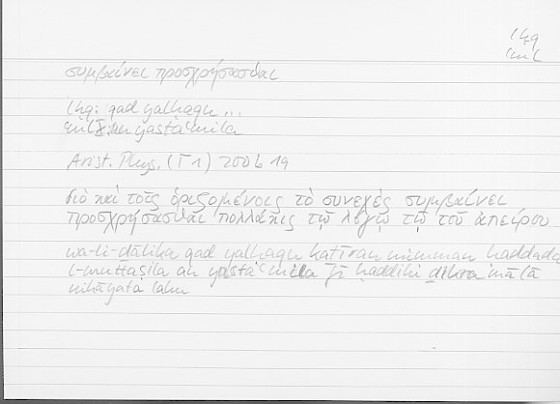 lḥq
ʿml
συμβαίνει προσχρήσασθαι
lḥq: qad yalḥaqu ...
ʿml X: an yastaʿmila
Arist. Phys. (Γ 1) 200 b 19
διὸ καὶ τοῖς ὁριζομένοις τὸ συνεχὲς συμβαίνει
προσχρήσασθαι πολλάκις τῷ λόγῳ τῷ τοῦ ἀπείρου
wa-li-ḏālika qad yalḥaqu kaṯīran mimman ḥaddada
l-muttaṣila an yastaʿmila fī ḥaddihī ḏikra mā lā
nihāyata lahu